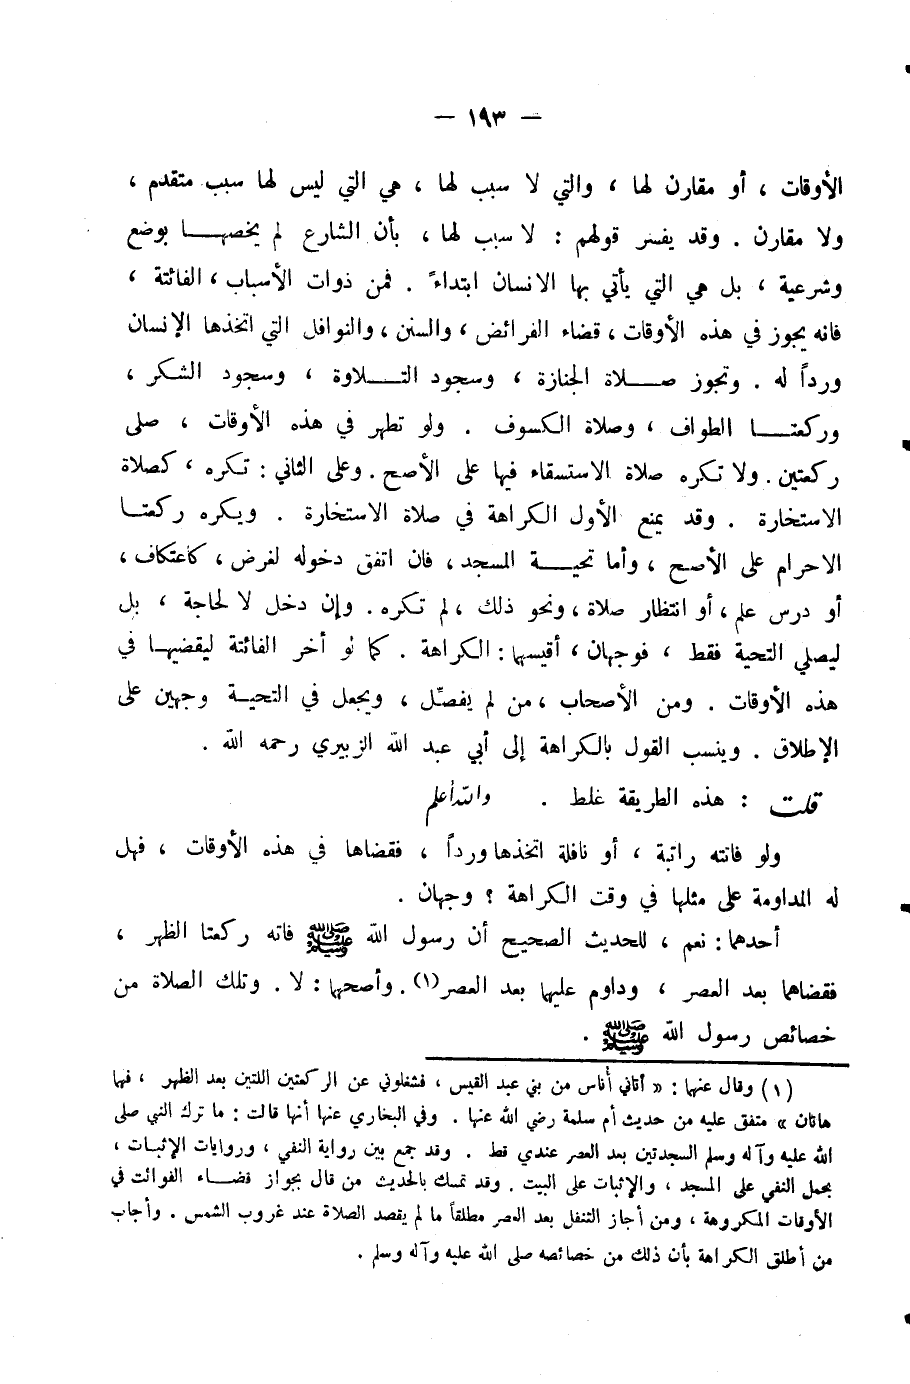 — ١٩٣ —
الأوقات ، أو مقارن لها ، والتي لا سبب لها ، هي التي ليس لها سبب متقدم ،
ولا مقارن . وقد يفسر قولهم : لا سبب لها ، بأن الشارع لم يخصهــا بوضع
وشرعية ، بل هي التي يأتي بها الانسان ابتداءً . فمن ذوات الأسباب ، الفائتة ،
فانه يجوز في هذه الأوقات ، قضاء الفرائض ، والسنن ، والنوافل التي اتخذها الإنسان
ورداً له . وتجوز صــلاة الجنازة ، وسجود التــلاوة ، وسجود الشكر ،
وركعتــا الطواف ، وصلاة الكسوف . ولو تطهر في هذه الأوقات ، صلى
ركعتين . ولا تكره صلاة الاستسقاء فيها على الأصح . وعلى الثاني : تكره ، كصلاة
الاستخارة . وقد يمنع الأول الكراهة في صلاة الاستخارة . ويكره ركعتــا
الاحرام على الأصح ، وأما تحيــة المسجد ، فان اتفق دخوله لغرض ، كاعتكاف ،
أو درس علم ، أو انتظار صلاة ، ونحو ذلك ، لم تكره . وإن دخل لا لحاجة ، بل
ليصلي التحية فقط ، فوجهان ، أقيسها : الكراهة . كما لو أخر الفائتة ليقضيهــا في
هذه الأوقات . ومن الأصحاب ، من لم يفصّل ، ويجعل في التحيــة وجهين على
الإطلاق . وينسب القول بالكراهة إلى أبي عبد الله الزبيري رحمه الله .
قلت : هذه الطريقة غلط . والله أعلم
ولو فاتته راتبة ، أو نافلة اتخذها ورداً ، فقضاها في هذه الأوقات ، فهل
له المداومة على مثلها في وقت الكراهة ؟ وجهان .
أحدهما : نعم ، للحديث الصحيح أن رسول الله ﷺ فاته ركعتا الظهر ،
فقضاهما بعد العصر ، وداوم عليها بعد العصر(١) . وأصحها : لا . وتلك الصلاة من
خصائص رسول الله ﷺ .
(١) وقال عنها : « أتاني أُناس من بني عبد القيس ، فشغلوني عن الركعتين اللتين بعد الظهر ، فهما
هاتان » متفق عليه من حديث أم سلمة رضي الله عنها . وفي البخاري عنها أنها قالت : ما ترك النبي صلى
الله عليه وآله وسلم السجدتين بعد العصر عندي قط . وقد جمع بين رواية النفي ، وروايات الإثبــات ،
بحمل النفي على المسجد ، والإثبات على البيت . وقد تمسك بالحديث من قال بجواز قضــاء الفوائت في
الأوقات المكروهة ، ومن أجاز التنفل بعد العصر مطلقاً ما لم يقصد الصلاة عند غروب الشمس . وأجاب
من أطلق الكراهة بأن ذلك من خصائصه صلى الله عليه وآله وسلم .